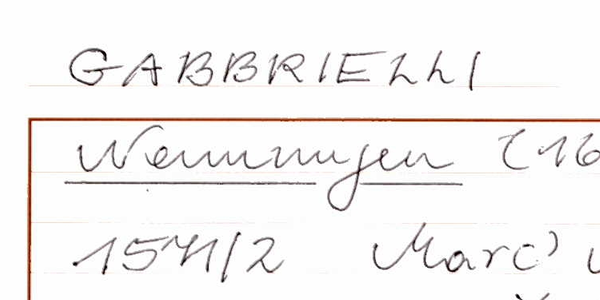 GABBRIELLI
Wemmingen (16
1571/2 Marc'